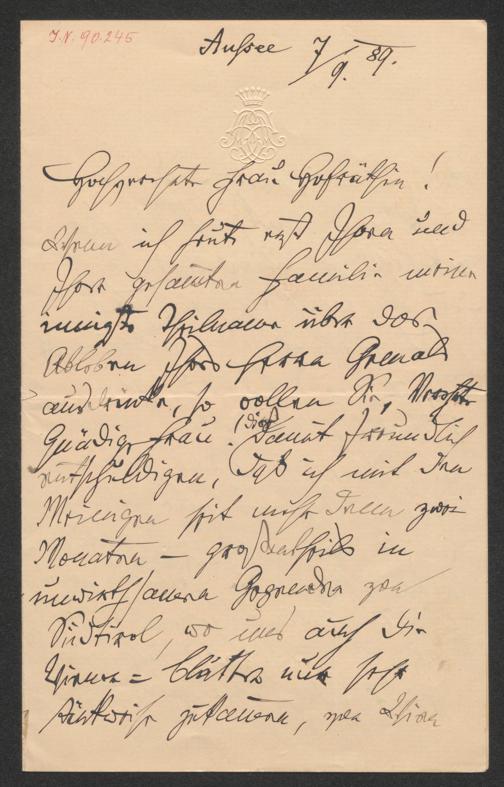 I.N. 90.245
Aussee 7/9. 89.
Hochverehrte Frau Hofräthin!
Wenn ich heute erst Ihnen und
Ihrer gesamten Familie meine
innigste Theilname über das
Ableben Ihres Herrn Gemals
ausdrücke, so wollen Sie, Verehrte
Gnädige Frau, (dieß) damit freundlich
entschuldigen, daß ich mit den
Meinigen seit mehr denn zwei
Monaten – großentheils in
unwirthsamen Gegenden von
Südtirol, wo uns auch die
Wiener-blätter nur sehr
zukamen, von Wien